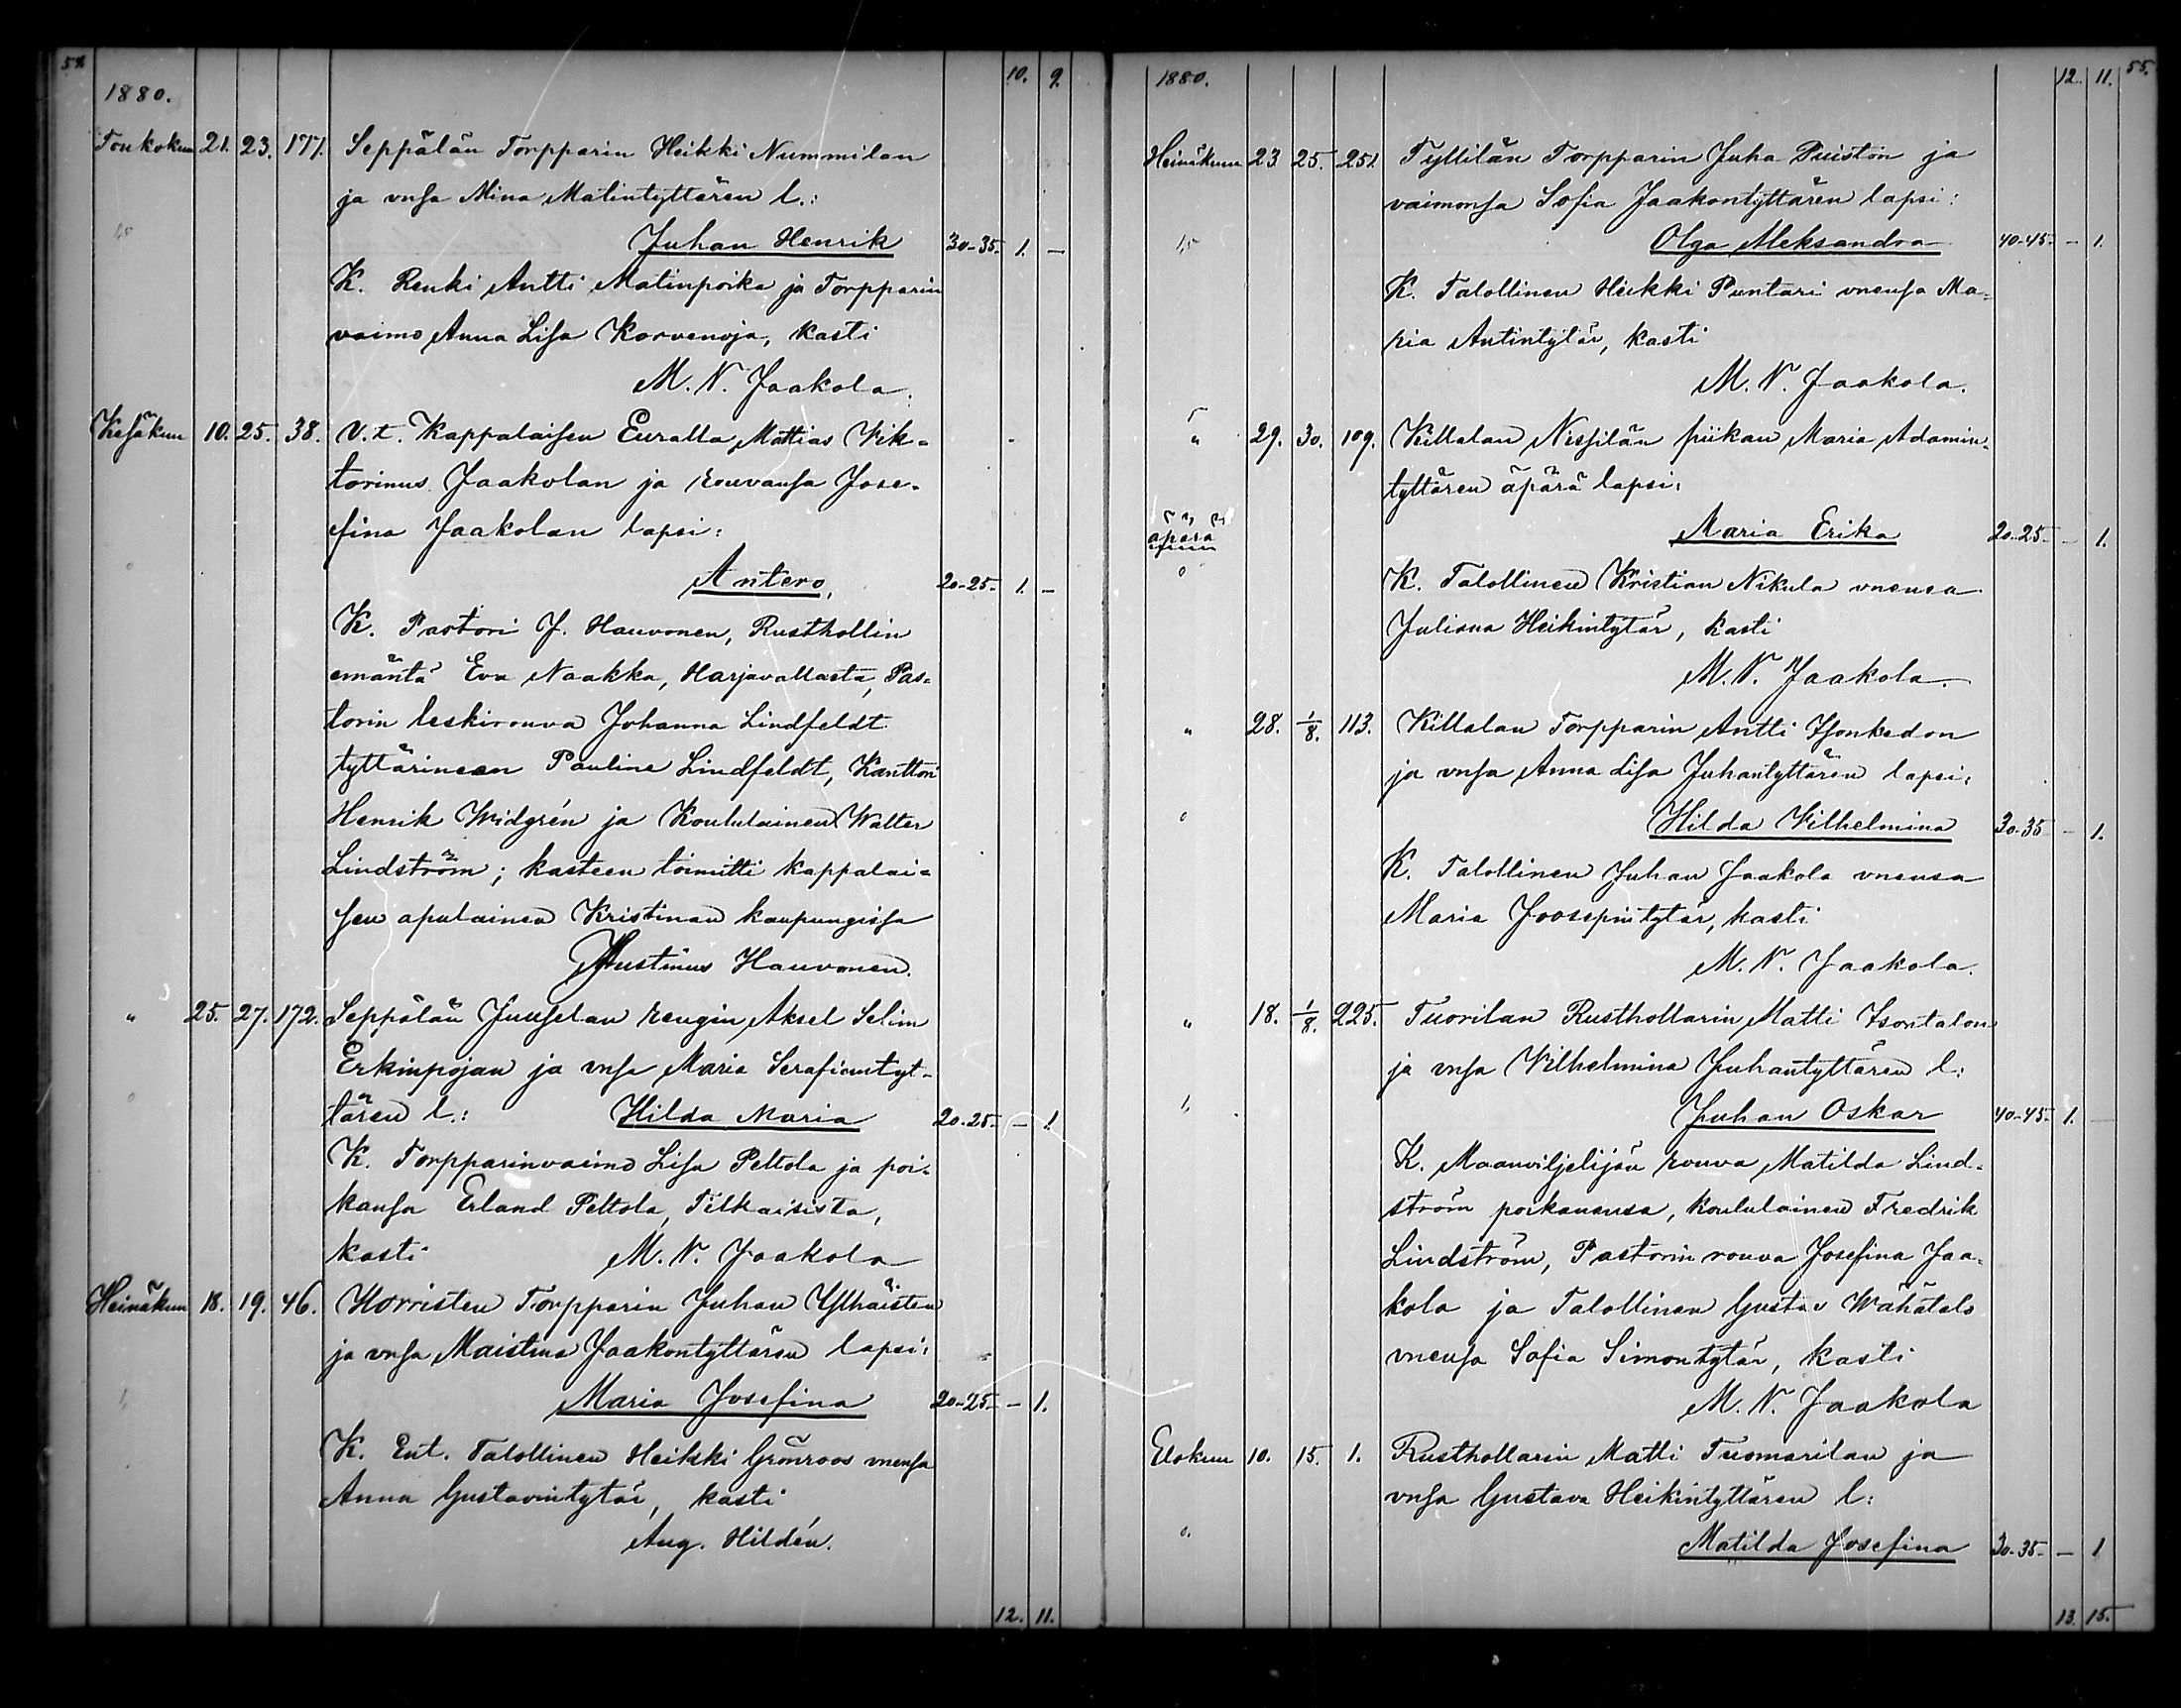 54
1880. 10. 9.
Toukokuu 21. 23. 177. Seppälän Torpparin Heikki Nummilan
ja vnsa Mina Matintyttären l.:
Juhan Henrik 30-35. 1. —
K. Renki Antti Matinpoika ja Torpparin
vaimo Anna Lisa Korvenoja, kasti
M. V. Jaakola.
Kesäkuu 10. 25. 38. V. t. Kappalaisen Euralla Mattias Vik-
torinus Jaakolan ja rouvansa Jose-
fina Jaakolan lapsi:
Antero, 20-25- 1. —
K. Pastori J. Hauvonen, Rusthollin
emäntä Eva Naakka, Harjavallasta, Pas-
torin leskirouva Johanna Lindfeldt
tyttärineen Pauline Lindfeldt, Kanttori
Henrik Widgrén ja Koululainen Walter
Lindström; kasteen toimitti kappalai-
sen apulainen Kristinan kaupungissa
Justinus Hauvonen.
" 25. 27. 172. Seppälän Juuselan rengin Aksel Selim
Erkinpojan ja vnsa Maria Serafiantyt-
tären l.: Hilda Maria 20-25- — 1.
K. Torpparinvaimo Lisa Peltola ja poi-
kansa Erland Peltola, Tilkaisista,
kasti M. V. Jaakola
Heinäkuu 18. 19. 46. Horristen Torpparin Juhan Ylhäisten
ja vnsa Maistina Jaakontyttären lapsi:
Maria Josefina 20-25- — 1.
K. Ent. Talollinen Heikki Grönroos vnensa
Anna Gustavintytär, kasti
Aug. Hildén.
12. 11.
1880. 12. 11. 55.
Heinäkuu 23 25. 251. Tyllilän Torpparin Juha Puiston ja
vaimonsa Sofia Jaakontyttären lapsi:
Olga Aleksandra 40-45- — 1.
K. Talollinen Heikki Puntari vnensa Ma-
ria Antintytär, kasti
M. V. Jaakola.
" 29. 30. 109. Killalan Nessilän piikan Maria Adamin-
tyttären äpärä lapsi:
äpärä Maria Erika 20-25- — 1.
K. Talollinen Kristian Nikula vnensa
Juliana Heikintytär, kasti
M. V. Jaakola.
" 28. 1/8. 113. Killalan Torpparin Antti Isonkedon
ja vnsa Anna Lisa Juhantyttären lapsi:
Hilda Vilhelmina 30-35 — 1.
K. Talollinen Juhan Jaakola vnensa
Maria Joosepintytär, kasti
M. V. Jaakola.
" 18. 1/8. 225. Tuorilan Rusthollarin Matti Isontalon
ja vnsa Vilhelmina Juhantyttären l:
Juhan Oskar 40-45- 1.
K. Maanviljelijän rouva Matilda Lind-
ström poikanansa, koululainen Fredrik
Lindström, Pastorin rouva Josefina Jaa-
kola ja Talollinen Gustav Wähätalo
vnensa Sofia Simontytär, kasti
M. V. Jaakola
Elokuu 10. 15. 1. Rusthollarin Matti Tuomarilan ja
vnsa Gustava Heikintyttären l:
Matilda Josefina 30-35- — 1
13. 15.